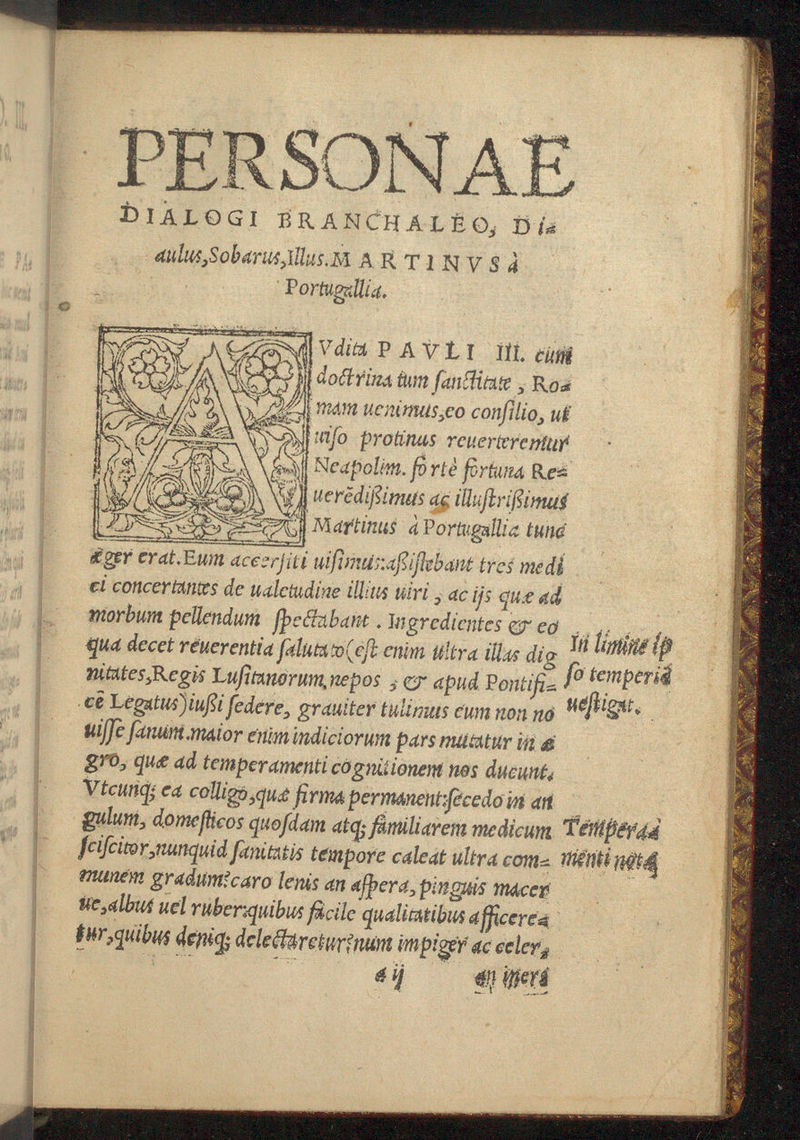 PERSONAE
DIALOGI BRANCHALEO, Dia
aulus,Sobarus,Illus.MARTINVS à
Portugallia.
AVdita PAVLI III. cum
doctrina tum sanctitate, Ro=
mam uenimus,eo consilio, ut
uiso protinus reuerterentur
Neapolim. fortè fortuna Re=
uerēdißimus ac illustrißimus
Martinus à Portugallia tunc
æger erat.Eum accersiti uisimus:aßistebant tres medi
ci concertantes de ualetudine illius uiri, ac ijs quæ ad
morbum pellendum spectabant. Ingredientes & ea
qua decet reuerentia salutato(est enim ultra illas dig
nitates,Regis Lusitanorum nepos, & apud Pontifi=
cē Legatus)iußi sedere, grauiter tulimus eum non no
uisse sanum.maior enim indiciorum pars mutatur in æ
gro, quæ ad temperamenti cognitionem nos ducunt,
Vtcunq; ea colligo,quæ firma permanent:secedo in an
gulum, domesticos quosdam atq; familiarem medicum
sciscitor,nunquid sanitatis tempore caleat ultra com=
munem gradum?caro lenis an aspera, pinguis macer
ue,albus uel ruber:quibus facile qualitatibus afficere=
tur,quibus deniq; delectaretur?num impiger ac celer,
a ij an iners
In limine ip
so temperiē
uestigat.
Tempera=
menti notæ